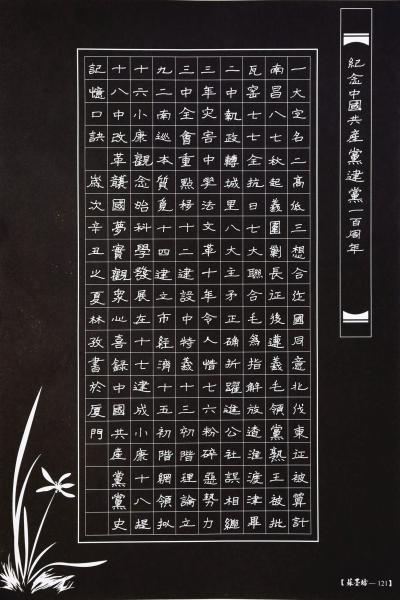 紀念中國共產黨建黨一百周年
一大定名二高低三想合從國同意北伐東征被算計
南昌八七秋起義圍剿長征後遵義毛領黨熟王被批
瓦窑七七全抗日七大聯合毛為指解放遼淮渡津畢
二中執政轉城里八大主矛正确折躍進公社誤相繼
三年灾害中學法文革十年令人惜七六粉碎惡勢力
三中全會重點移十二建設中特義十三初階理論立
九二南巡本質夏十四建立市經濟十五初階綱領拟
十六小康觀念始科學發展在十七建成小康十八提
十八中改革讓國夢實觀衆心喜錄中國共產黨黨史
記憶口訣 歲次辛丑之夏林政書於厦門
121